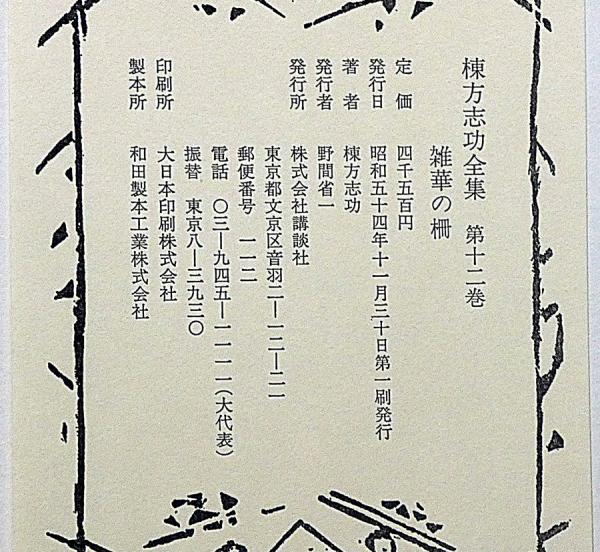 棟方志功全集　第十二巻
雑華の柵
定価　四千五百円
発行日　昭和五十四年十一月三十日第一刷発行
著者　棟方志功
発行者　野間省一
発行所　株式会社講談社
東京都文京区音羽二—一二—二一
郵便番号　一一二
電話　〇三—九四五—一一一一(大代表)
振替　東京八—三九三〇
印刷所　大日本印刷株式会社
製本所　和田製本工業株式会社